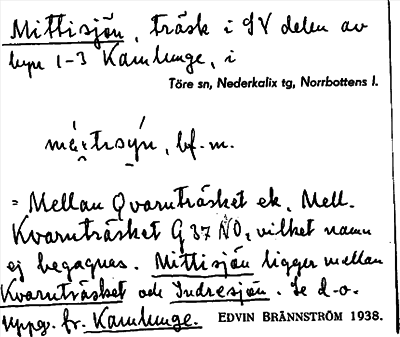 Mittisjön, träsk i SV delen av
byn 1-3 Kamlunge, i
Töre sn, Nederkalix tg, Norrbottens l.
bf. m.
= Mellan Qvarnträsket ek. Mell.
Kvarnträsket G 37 NO, vilket namn
ej begagnas. Mittisjön ligger mellan
Kvarnträsket och Indresjön. Se d. o.
Uppg. fr. Kamlunge. EDVIN BRÄNNSTRÖM 1938.